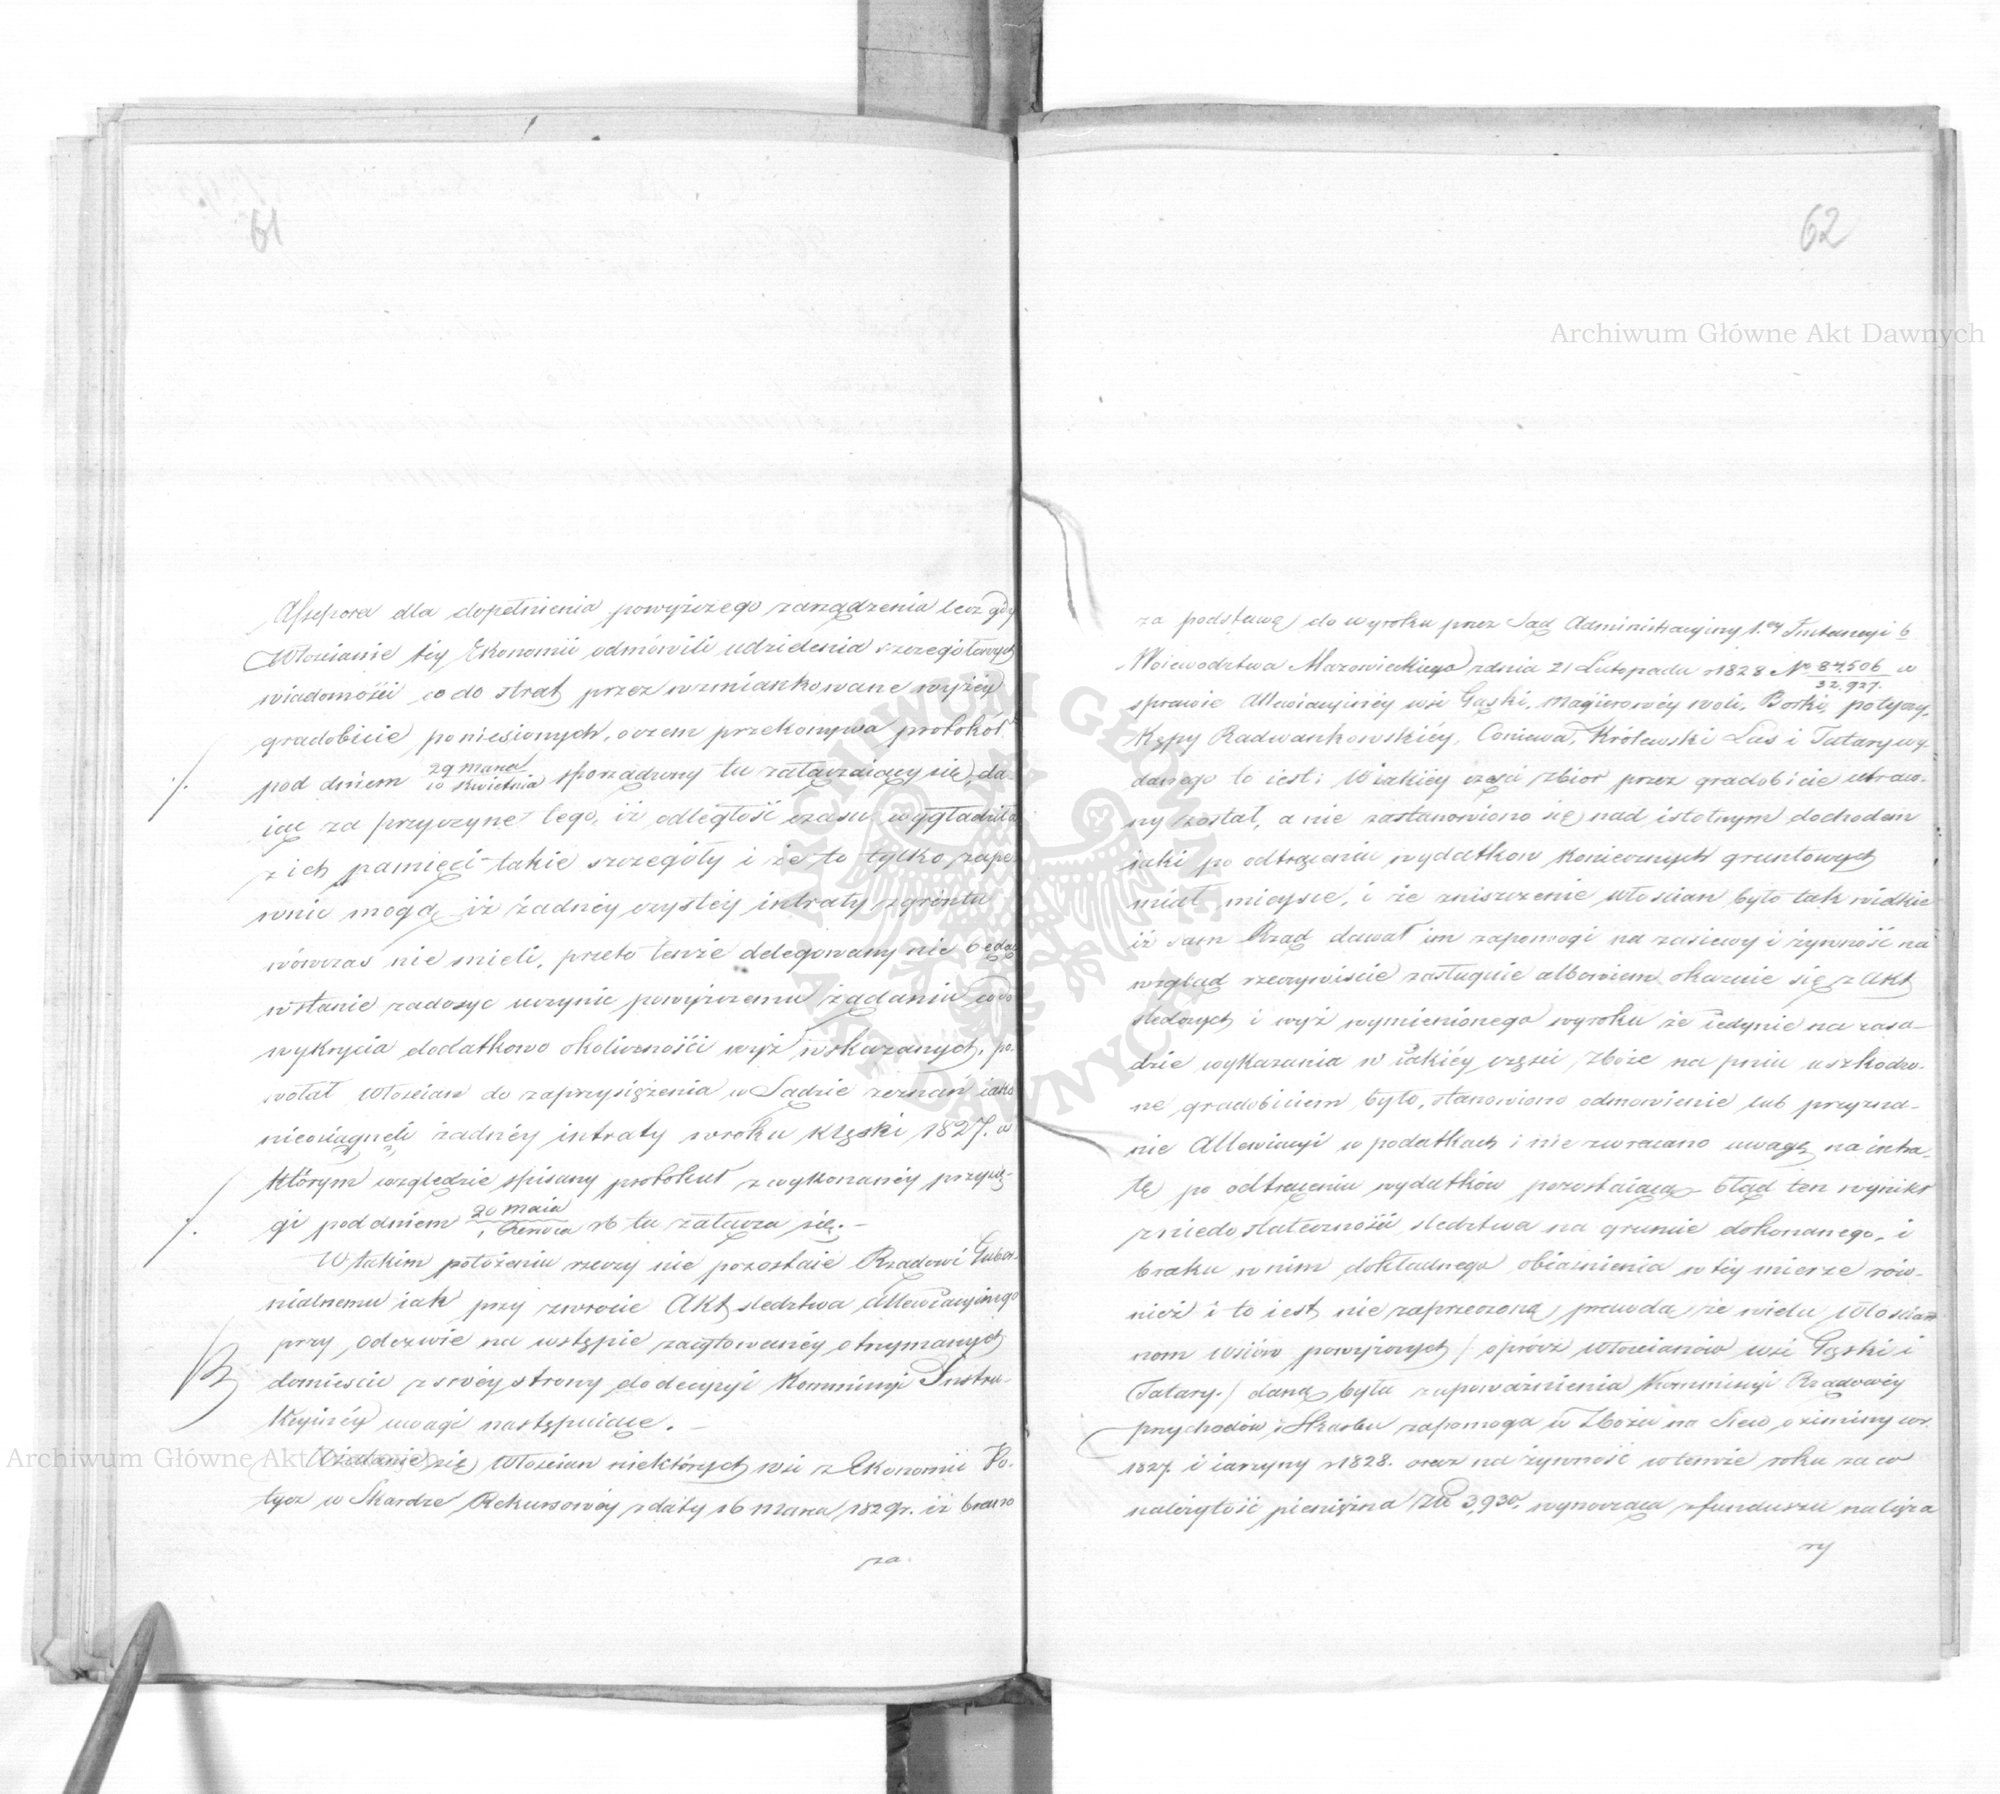 61
Assessora dla dopełnienia powyższego zarządzenia lecz gdy
Włoscianie tey Ekonomii odmówili udzielenia szczegółowych
wiadomości co do strat przez wzmiankowane wyżéy
gradobicie poniesionych, o czem przekonywa protokół
pod dniem 29 marca / 10 Kwietnia sporządzony tu załączaiący się, da-
iąc za przyczynę tego, iż odległość czasu wygładziła
z ich pamięci takie szczegóły i że to tylko zape-
wnić mogą iż żadnéy czystéy intraty z gruntu
wówczas nie mieli, przeto tenże delegowany nie będąc
wstanie zadosyć uczynić powyższemu żądaniu co do
wykrycia dodatkowo okoliczności wyż wskazanych, po-
wołał Włościan do zaprzysiężenia w Sądzie zeznań iako
nieosiągneli żadnéy intraty w roku klęski 1827. w
którym względzie spisany protokuł z wykonanéy przysię-
gi pod dniem 20 Maia / 1 Czerwca rb tu załącza się. —
W takim położeniu rzeczy nie pozostaie Rządowi Guber-
nialnemu iak przy zwrocie Akt sledztwa Allewiacyinego
przy odezwie na wstępie zacytowanéy otrzymanych
donieście z swéy strony do decyzyi Kommissyi Instru-
kcyinéy uwagi następuiące. —
Użalanie się Włoscian niektórych wsi z Ekonomii Po-
tycz w Skardze Rekursowéy z daty 16 Marca 1829r. iż brano
za
62
za podstawę do wyroku przez Sąd Administracyiny 1.ey Instancyi b
Woiewodztwa Mazowieckiego z dnia 21 Listopada r 1828 No 87.506 / 32.927. w
sprawie Allewiacyinéy wsi Gąski, Magierowéy woli, Borki, potyczy,
Kępy Radwankowskiéy, Coniewa, Królewski Las i Tatary wy-
danego to iest: W iakiéy części zbiór przez gradobicie utraco-
ny został, a nie zastanowiono się nad istotnym dochodem
iaki po odtrąceniu wydatkow koniecznych gruntowych
miał mieysce, i że zniszczenie włoscian było tak wielkie
iż sam Rząd dawał im zapomogi na zasiewy i żywność na
wzgląd rzeczywiście zasługuie albowiem okazuie się z Akt
sledczych i wyż wymienionego wyroku że iedynie na zasa-
dzie wykazania w iakiéy części zboże na pniu uszkodzo-
ne gradobiciem było, stanowiono odmowienie lub przyzna-
nie Allewiacyi w podatkach i nie zwracano uwagę na intra-
tę po odtrąceniu wydatków pozostaiącą. błąd ten wynikł
z niedostateczności sledztwa na gruncie dokonanego, i
braku w nim dokładnego obiaśnienia w téy mierze rów-
nież i to iest nie zaprzeczoną prawdą że wielu Włościa-
nom wsiów powyższych / oprócz włoscianów wsi Gąski i
Tatary. / daną była z upoważnienia Kommissyi Rządowéy
przychodów i Skarbu zapomoga w Zbożu na Siew oziminy w r.
1827. i iarzyny r 1828. oraz na żywność w tenże roku za co
należytość pieniężna Złł 3,930. wynosząca z funduszu na liwera
ry
Archiwum Główne Akt Dawnych
Archiwum Główne Akt Dawnych
ARCHIWUM GŁÓWNE AKT DAWNYCH